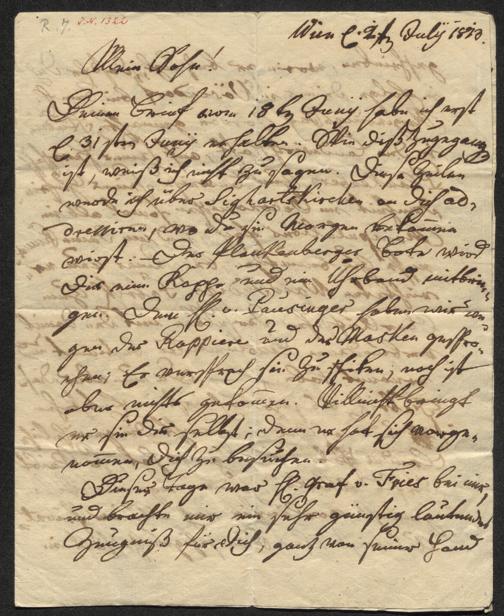 R. H. J.N. 1322
Wien d. 2t July 1823.
Mein Sohn!
Deinen Brief vom 18ten Juny habe ich erst
d. 31sten Juny erhalten. Wie diß zugegangen
ist, weiß ich nicht zu sagen. Diese Zeilen
werde ich über Sighartskirchen an Dich ad-
dressiren, wo du sie Morgen bekommen
wirst. – Der Plankenberger Bote wird
Dir eine Kappe und ein Uhrband mitbrin-
gen. Dem H. v. Pausinger haben wir we-
gen der Rappiere und der Masken gespro-
chen; Er versprach sie zu schicken, noch ist
aber nichts gekommen. Vielleicht bringt
er sie Dir selbst; denn er hat sich vorge-
nommen, Dich zu besuchen.
Dieser Tage war H. Graf v. Fries bei mir,
und brachte mir ein sehr günstig lautendes
Zeugniß für Dich, ganz von seiner Hand